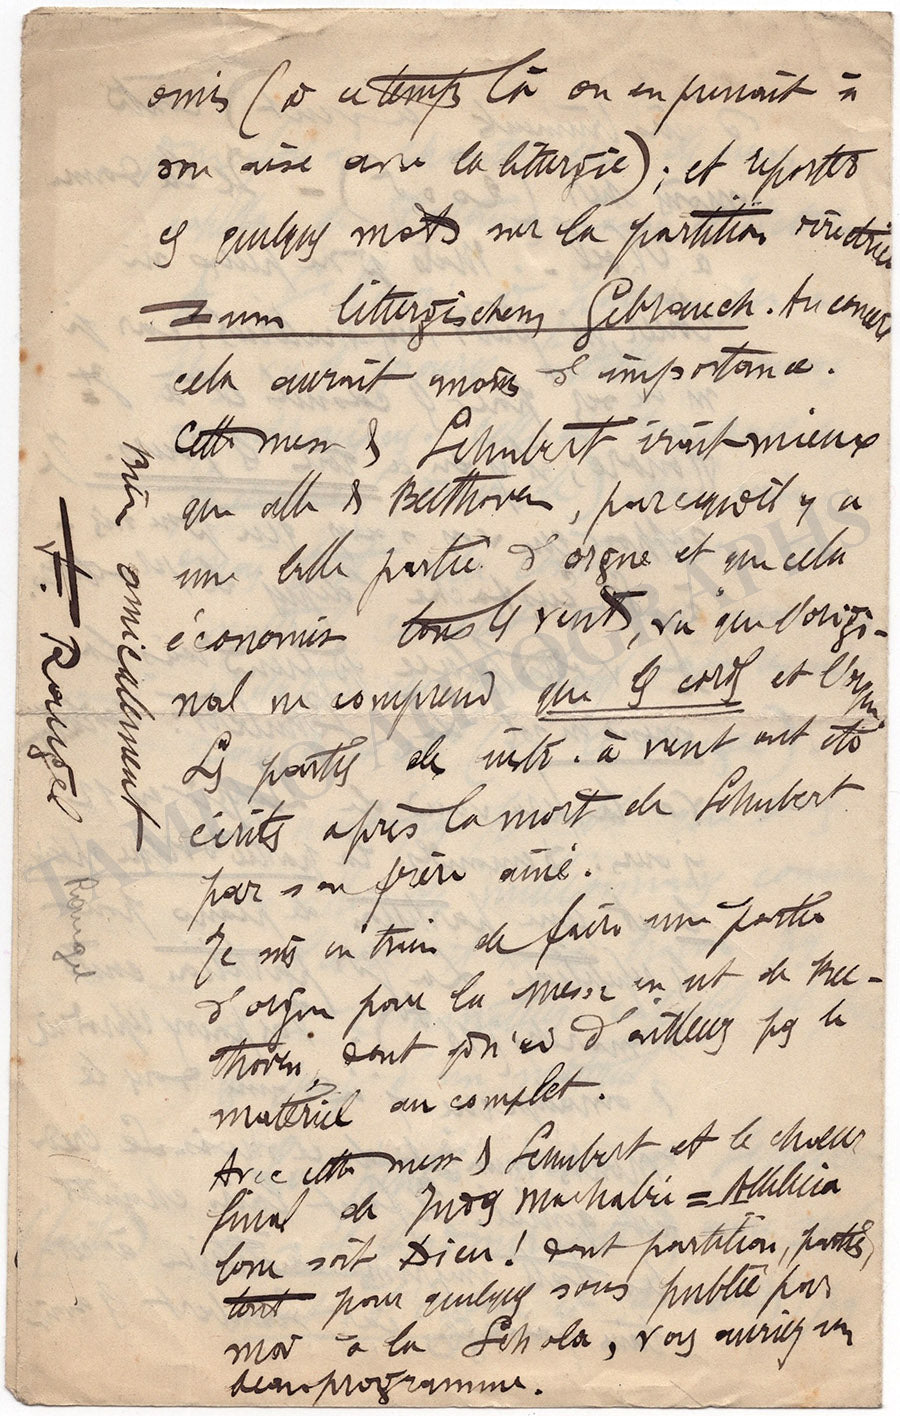 omis (à ce temps là on en prenait à
son aise avec la littérgie); et reportés
es quelques mots sur la partition directrice
zum littergischem Gebrauch. Au concert
cela aurait moins d'importance.
Cette messe de Schubert irait mieux
que celle de Beethoven, parcequ'il y a
une belle partie d'orgue et que cela
économise tous les vents, vu que l'origi-
nal ne comprend que les cordes et l'orgue.
Les parties de instr. à vent ont été
écrites après la mort de Schubert
par son frère ainé.
Je suis en train de faire une partie
d'orgue pour la messe en ut de Bee-
thoven, dont je n'ai d'ailleurs pas le
matériel au complet.
Avec cette messe de Schubert et le choeur
final de Judas Machabée = Alleluia
loué soit Dieu! dont partition, parties,
tout pour quelques sous publié par
moi à la Schola, vous auriez un
beau programme.
Bien amicalement
F. Raugel
Raugel
TAMINO AUTOGRAPHS